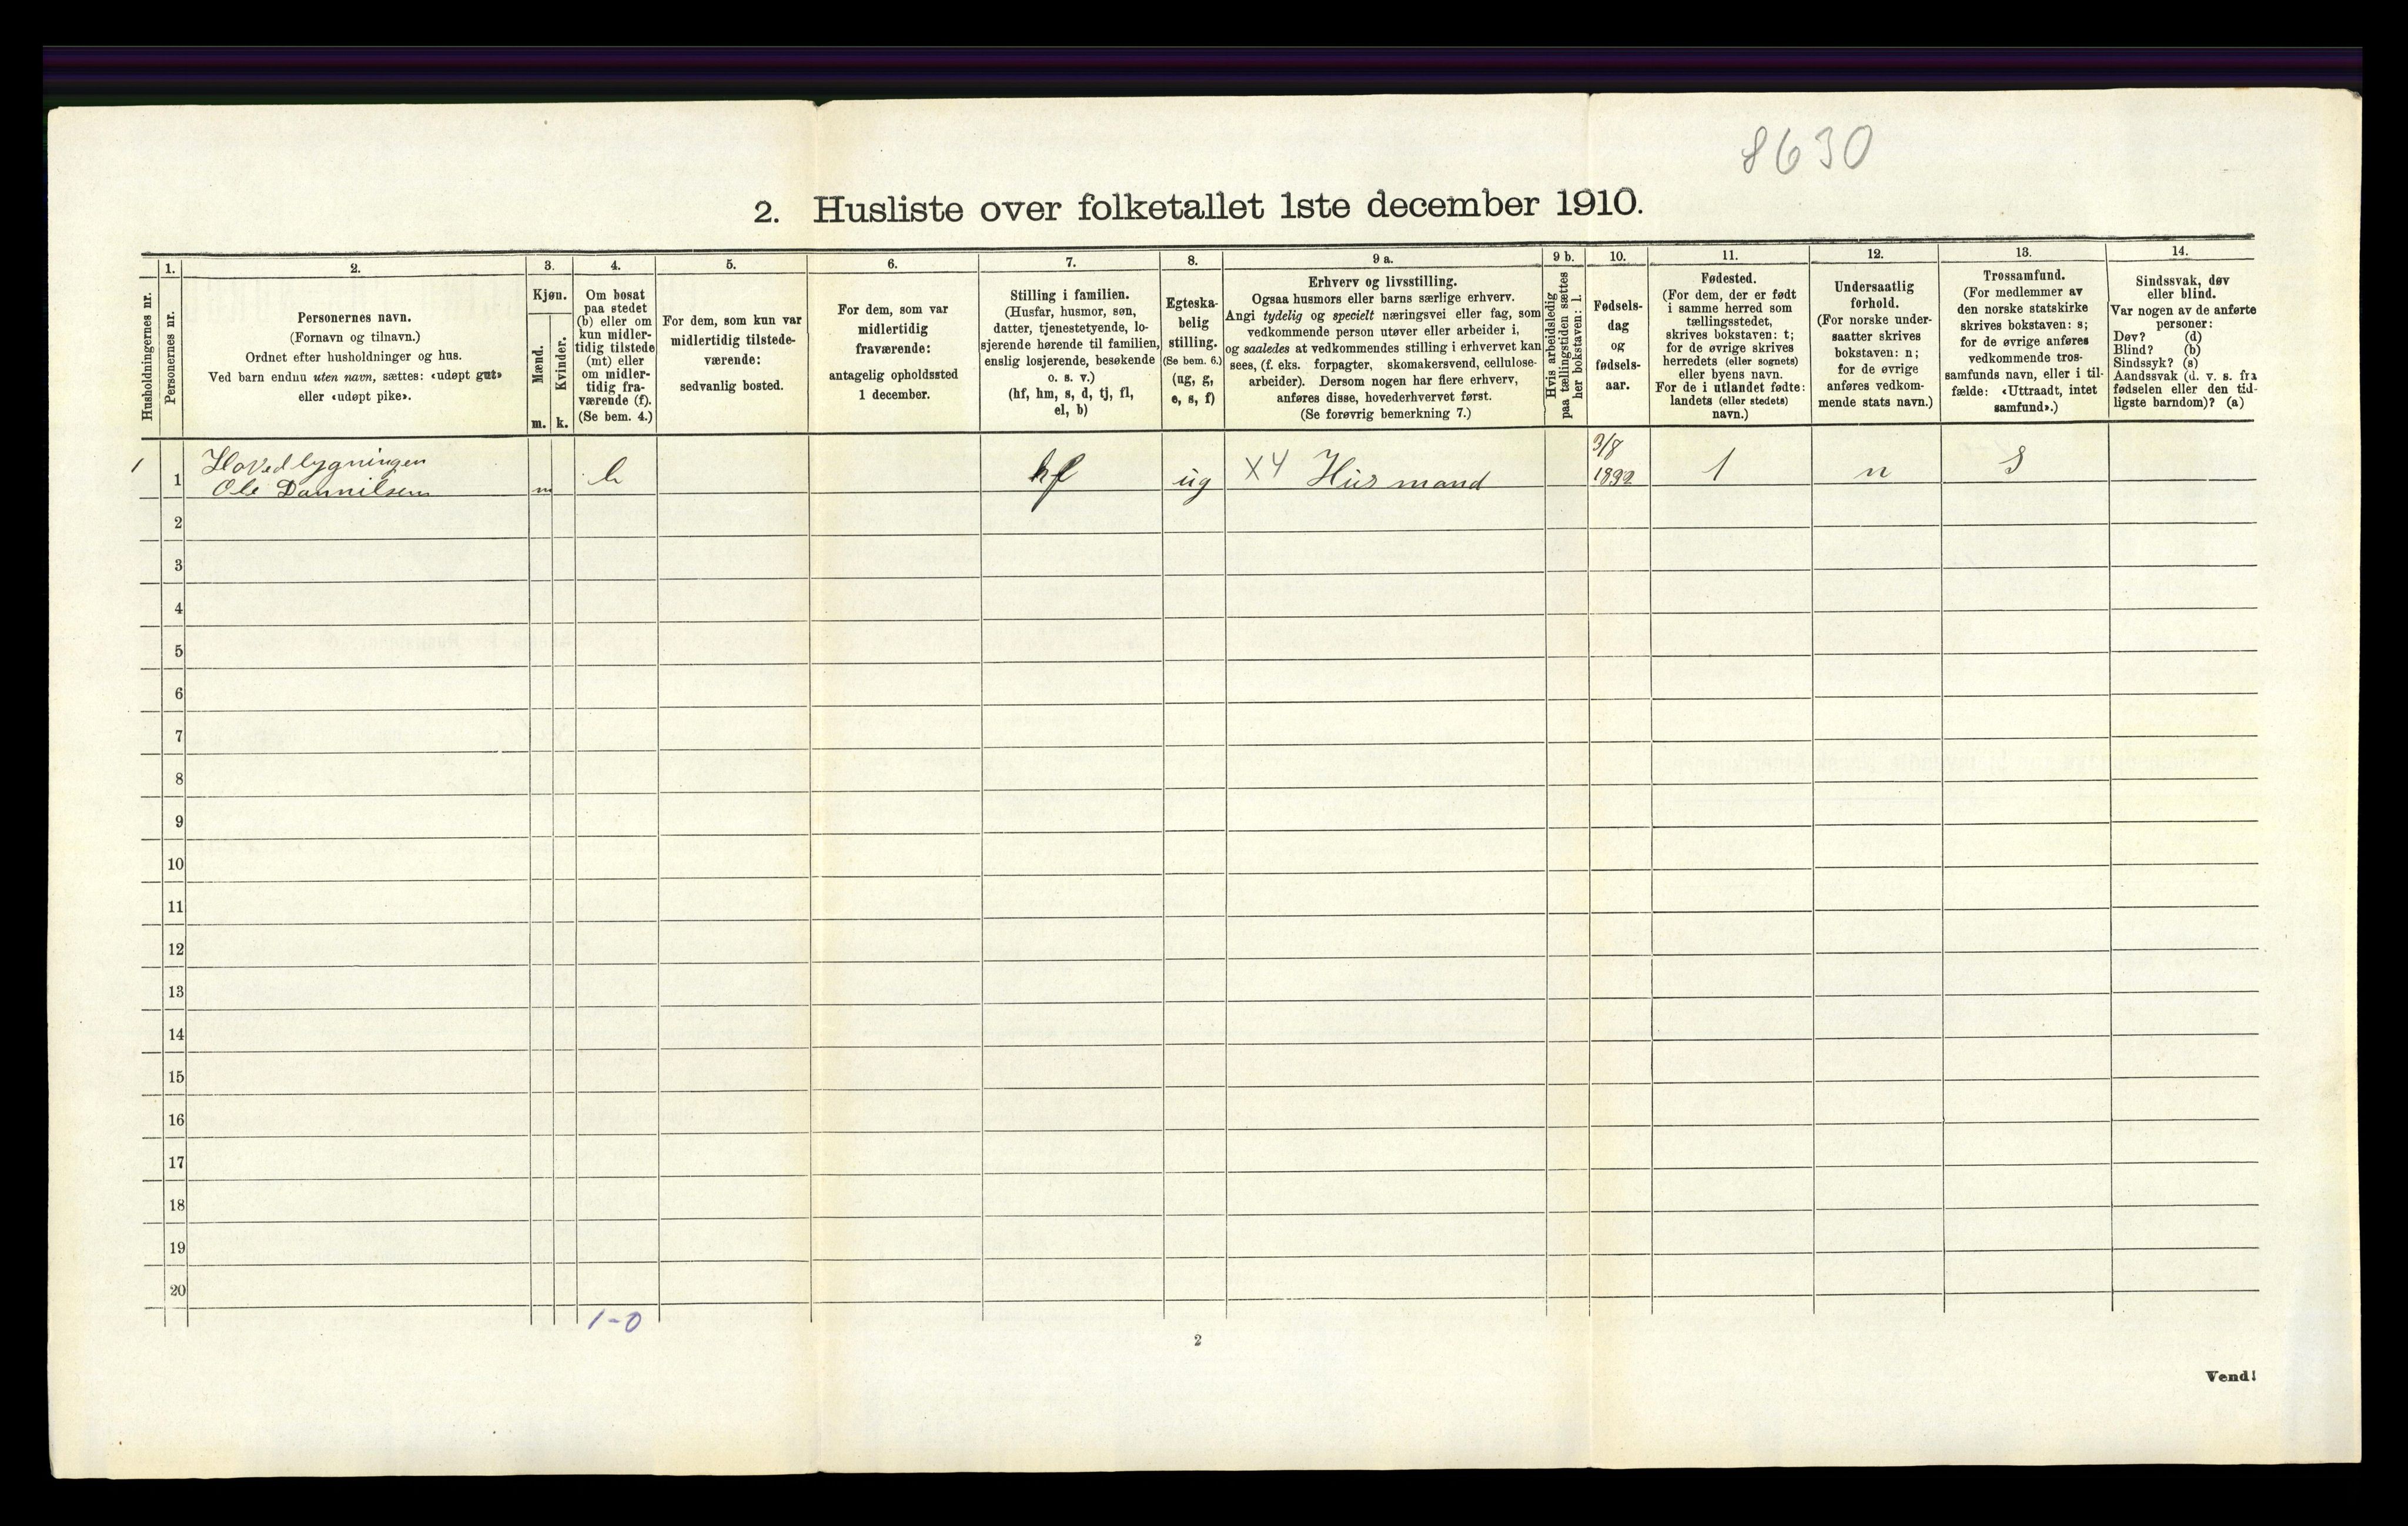 8630
2. Husliste over folketallet 1ste december 1910.
Husholdningernes nr.
1.
Personernes nr.
2.
Personernes navn.
(Fornavn og tilnavn.)
Ordnet efter husholdninger og hus.
Ved barn endnu uten navn, sættes: «udøpt gut»
eller «udøpt pike».
3.
Kjøn.
Mænd.
Kvinder.
m.
k.
4.
Om bosat
paa stedet
(b) eller om
kun midler-
tidig tilstede
(mt) eller
om midler-
tidig fra-
værende (f).
(Se bem. 4.)
5.
For dem, som kun var
midlertidig tilstede-
værende:
sedvanlig bosted.
6.
For dem, som var
midlertidig
fraværende:
antagelig opholdssted
1 december.
7.
Stilling i familien.
(Husfar, husmor, søn,
datter, tjenestetyende, lo-
sjerende hørende til familien,
enslig losjerende, besøkende
o. s. v.)
(hf, hm, s, d, tj, fl,
el, b)
8.
Egteska-
belig
stilling.
(Se bem. 6.)
(ug, g,
e, s, f)
9 a.
Erhverv og livsstilling.
Ogsaa husmors eller barns særlige erhverv.
Angi tydelig og specielt næringsvei eller fag, som
vedkommende person utøver eller arbeider i,
og saaledes at vedkommendes stilling i erhvervet kan
sees, (f. eks. forpagter, skomakersvend, cellulose-
arbeider). Dersom nogen har flere erhverv,
anføres disse, hovederhvervet først.
(Se forøvrig bemerkning 7.)
9 b.
Hvis arbeidsledig
paa tællingstiden sættes
her bokstaven: l.
10.
Fødsels-
dag
og
fødsels-
aar.
11.
Fødested.
(For dem, der er født
i samme herred som
tællingsstedet,
skrives bokstaven: t;
for de øvrige skrives
herredets (eller sognets)
eller byens navn.
For de i utlandet fødte:
landets (eller stedets)
navn.)
12.
Undersaatlig
forhold.
(For norske under-
saatter skrives
bokstaven: n;
for de øvrige
anføres vedkom-
mende stats navn.)
13.
Trossamfund.
(For medlemmer av
den norske statskirke
skrives bokstaven: s;
for de øvrige anføres
vedkommende tros-
samfunds navn, eller i til-
fælde: «Uttraadt, intet
samfund».)
14.
Sindssvak, døv
eller blind.
Var nogen av de anførte
personer:
Døv? (d)
Blind? (b)
Sindssyk? (s)
Aandssvak (d. v. s. fra
fødselen eller den tid-
ligste barndom)? (a)
Hovedbygningen
1 1 Ole Dannilsen m b hf ug X4 Husmand 3/8 1892 t n s
2
3
4
5
6
7
8
9
10
11
12
13
14
15
16
17
18
19
20
1-0
2
Vend!